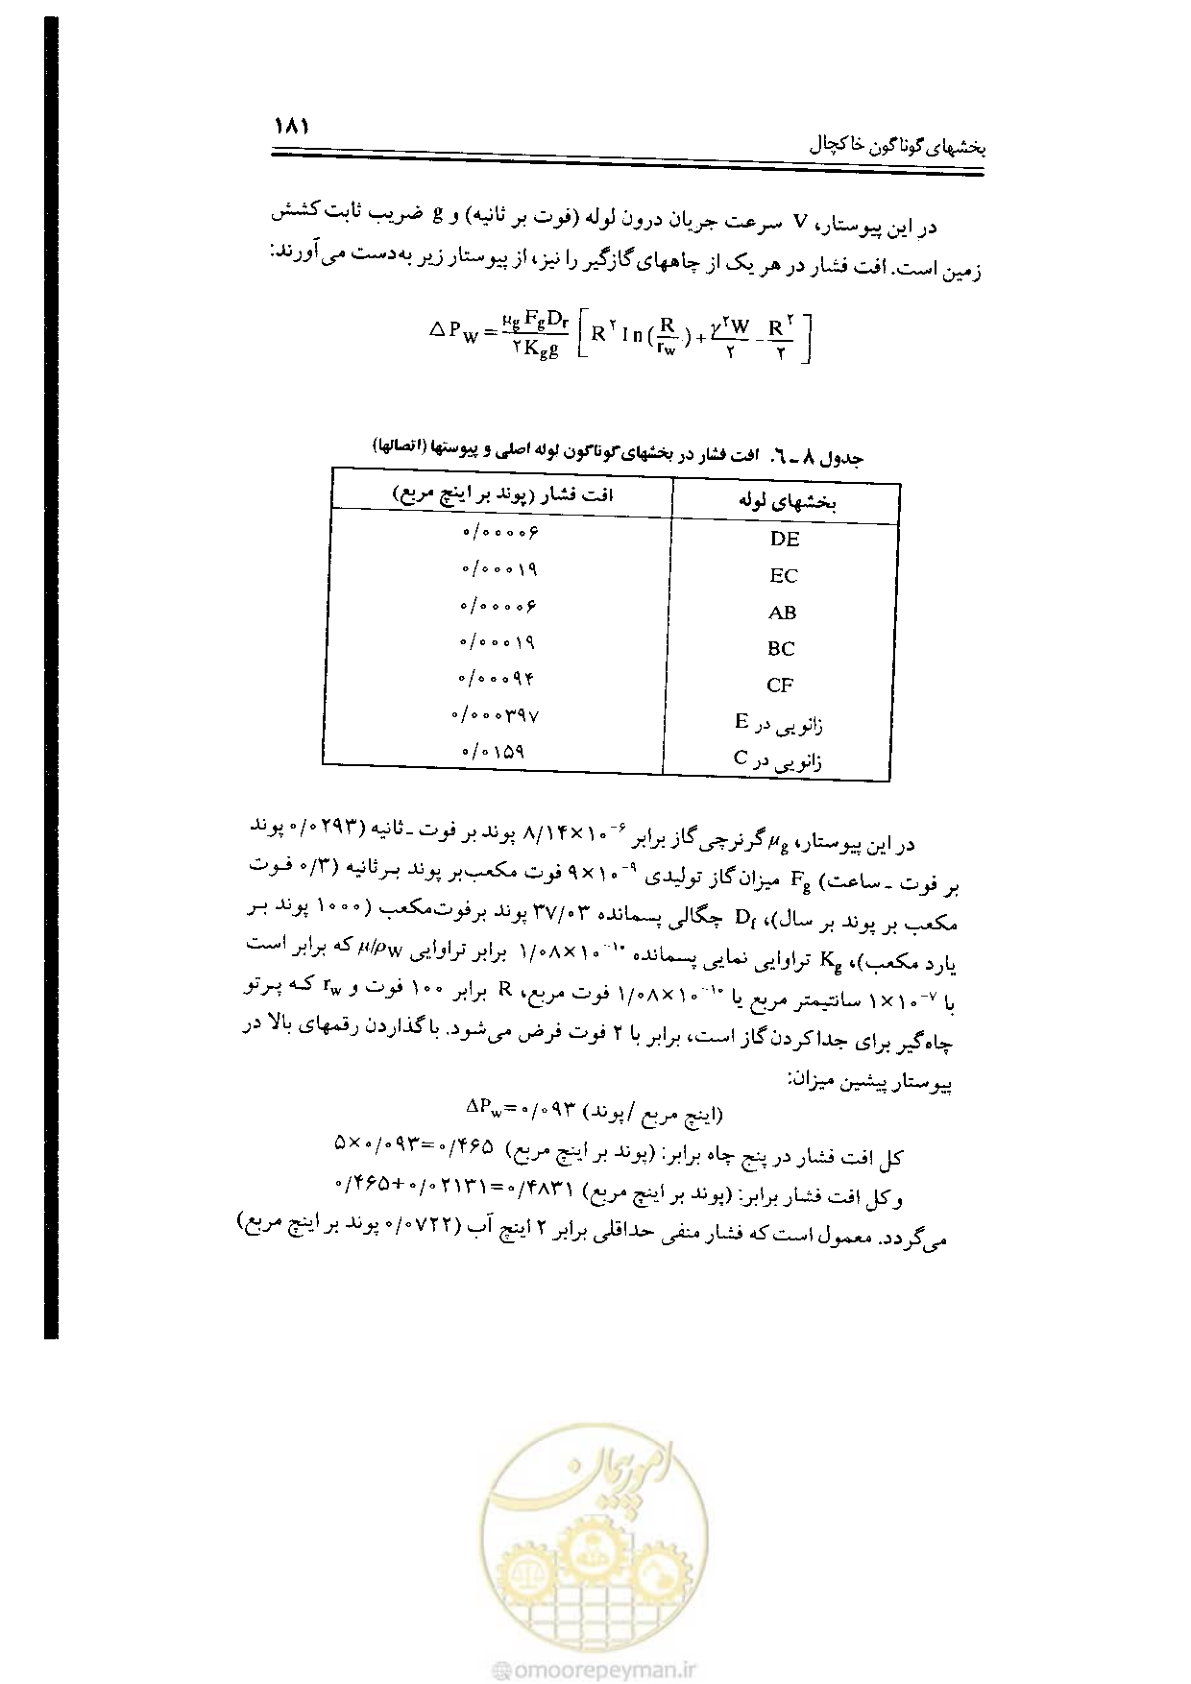 بخشهای گوناگون خاکچال
۱۸۱
در این پیوستار، V سرعت جریان درون لوله (فوت بر ثانیه) و g ضریب ثابت کشش
زمین است. افت فشار در هر یک از چاههای گازگیر را نیز، از پیوستار زیر به‌دست می‌آورند:
ΔP_W = μ_g F_g D_r / ۲K_g g [ R^۲ ln(R / r_w) + γ^۲W / ۲ - R^۲ / ۲ ]
جدول ۸ ـ ۶. افت فشار در بخشهای گوناگون لوله اصلی و پیوستها (اتصالها)
بخشهای لوله افت فشار (پوند بر اینچ مربع)
DE ۰/۰۰۰۰۶
EC ۰/۰۰۰۱۹
AB ۰/۰۰۰۰۶
BC ۰/۰۰۰۱۹
CF ۰/۰۰۰۹۴
زانویی در E ۰/۰۰۰۳۹۷
زانویی در C ۰/۰۱۵۹
در این پیوستار، μ_g گرنرچی گاز برابر ۸/۱۴×۱۰^-۶ پوند بر فوت ـ ثانیه (۰/۰۲۹۳ پوند
بر فوت ـ ساعت) F_g میزان گاز تولیدی ۹×۱۰^-۹ فوت مکعب‌بر پوند بر ثانیه (۰/۳ فوت
مکعب بر پوند بر سال)، D_r چگالی پسمانده ۳۷/۰۳ پوند برفوت‌مکعب (۱۰۰۰ پوند بر
یارد مکعب)، K_g تراوایی نمایی پسمانده ۱/۰۸×۱۰^-۱۰ برابر تراوایی μ/ρ_W که برابر است
با ۱×۱۰^-۷ سانتیمتر مربع یا ۱/۰۸×۱۰^-۱۰ فوت مربع، R برابر ۱۰۰ فوت و r_w که پرتو
چاه‌گیر برای جدا کردن گاز است، برابر با ۲ فوت فرض می‌شود. با گذاردن رقمهای بالا در
پیوستار پیشین میزان:
ΔP_w=۰/۰۹۳ (اینچ مربع /پوند)
کل افت فشار در پنج چاه برابر: (پوند بر اینچ مربع) ۵×۰/۰۹۳=۰/۴۶۵
و کل افت فشار برابر: (پوند بر اینچ مربع) ۰/۴۶۵+۰/۰۲۱۳۱=۰/۴۸۳۱
می‌گردد. معمول است که فشار منفی حداقلی برابر ۲ اینچ آب (۰/۰۷۲۲ پوند بر اینچ مربع)
امور پیمان
@omoorepeyman.ir